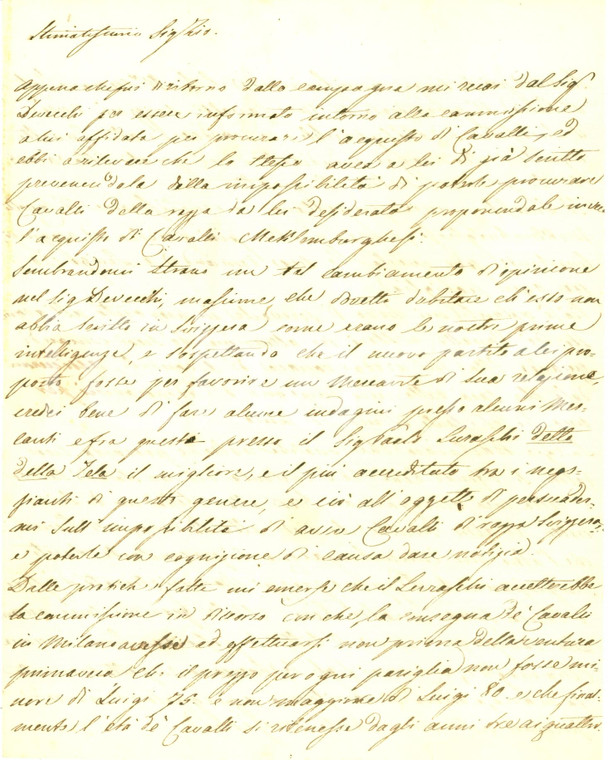 Stimatissimo Sig. Zio.
Appena che fui di ritorno dalla campagna mi recai dal Sig.
Devecchi per essere informato intorno alla commissione
a lui affidata per procurare l'acquisto di Cavalli, ed
ebbi a rilevare che lo stesso avea a lei di già scritto
prevenendola della impossibilità di poterle procurare
Cavalli della razza da lei desiderata proponendole invece
l'acquisto di Cavalli Meklemburghesi.
Sembrandomi strano un tal cambiamento d'opinione
nel Sig. Devecchi, massime che dovetti dubitare ch'esso non
abbia scritto in Svizzera come erano le nostre prime
intelligenze, e sospettando che il nuovo partito a lei pro-
posto fosse per favorire un Mercante di sua relazione,
credei bene di fare alcune indagini presso alcuni Mer-
canti e fra questi presso il Sig. Paolo Luraschi detto
della Tela il migliore, e il più accreditato tra i nego-
zianti di questo genere, e ciò all'oggetto di persuader-
mi sull'impossibilità di avere Cavalli di razza Svizzera,
e poterle con cognizione di causa dare notizia.
Dalle pratiche fatte mi emerse che il Luraschi accetterebbe
la commissione in discorso con che, la consegna de' Cavalli
in Milano avesse ad effettuarsi non prima della ventura
primavera che il prezzo per ogni pariglia non fosse mi-
nore di Luigi 75. e non maggiore di Luigi 80. e che final-
mente l'età de' Cavalli si ritenesse dagli anni tre ai quattro.